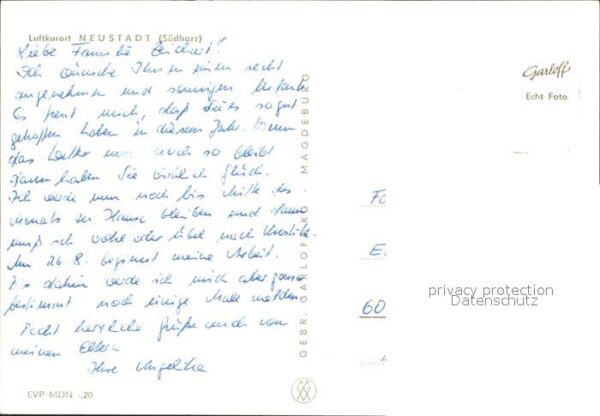 Luftkurort NEUSTADT (Südharz)
Liebe Familie
Ich wünsche Ihnen einen recht
angenehmen und sonnigen Urlaub.
Es freut mich, daß Sie's so gut
getroffen haben in diesem Jahr. Wenn
das Wetter nur noch so bleibt
dann haben Sie wirklich Glück.
Ich werde nun noch bis Mitte des
Monats zu Hause bleiben und dann
muß ich wohl oder übel nach
Am 26.8. beginnt meine Arbeit.
Bis dahin werde ich mich aber ganz
bestimmt noch einige Male melden.
Recht herzliche Grüße auch von
meinen Eltern
Ihre Angelika
EVP MDN -,20
GEBR. GARLOFF KG MAGDEBURG
Garloff
Echt Foto
privacy protection
Datenschutz
60